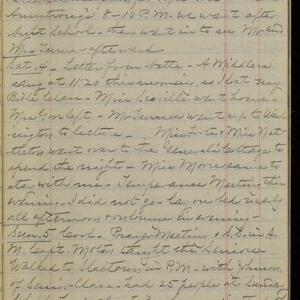 Armstrong's 8-10 P.M. we went after
night School - then went in to see Mr and
Mrs Turner afterward
Sat. 4 - Letter from Nette - A Middlers
sang at 11:20 this morning, so I lost my
Bible Class - Miss Scoville went home -
Mrs Gov. left - Mr Turner went up to Wash-
ington to lecture. Miss Foote & Miss Net-
tleton went over to the General's Cottage to
spend the night - Miss Moore came to
stay with me - Temperance Meeting this
evening. I did not go - Lay on bed nearly
all afternoon & on lounge in evening -
Sun. 5 Cool - Prayer Meeting & S.S. in A.
M. Capt. Moton taught the Seniors
Walked to Slabtown in P.M. with Johnson
of Senr. Class - had 25 people at Sunday